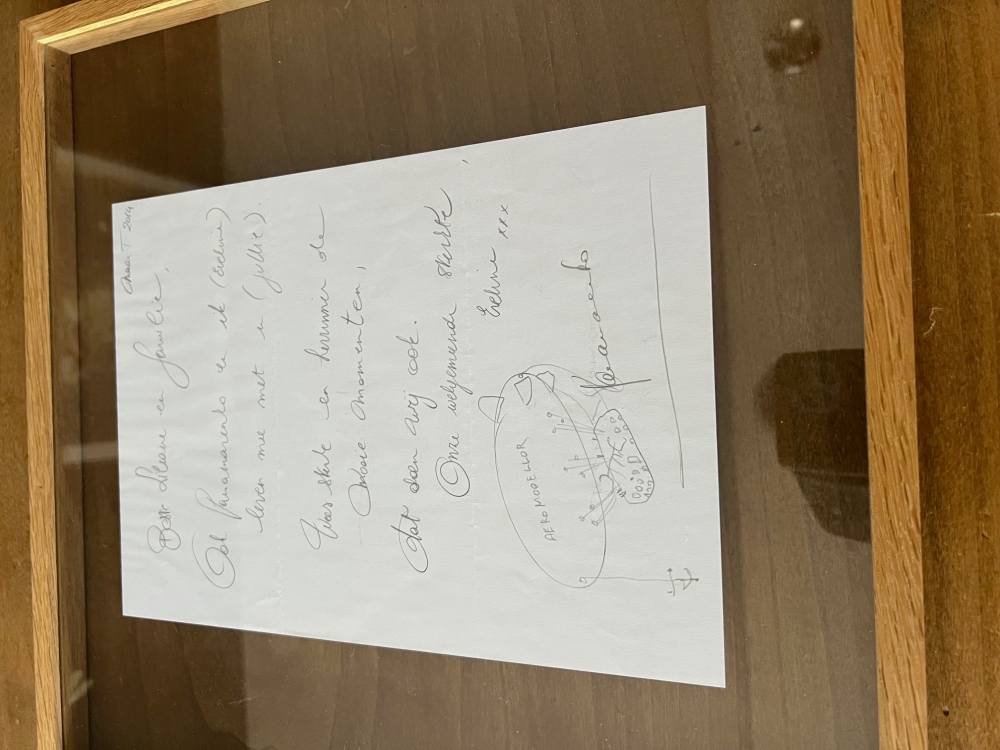 Maart 2019
Beste Liliane en familie,
Ook Panamarenko en ik (Eveline)
leven mee met u (jullie).
Wees sterk en herinner de
mooie momenten,
dat doen wij ook.
Onze welgemeende sterkte,
Eveline xxx
AEROMODELLOR
Panamarenko